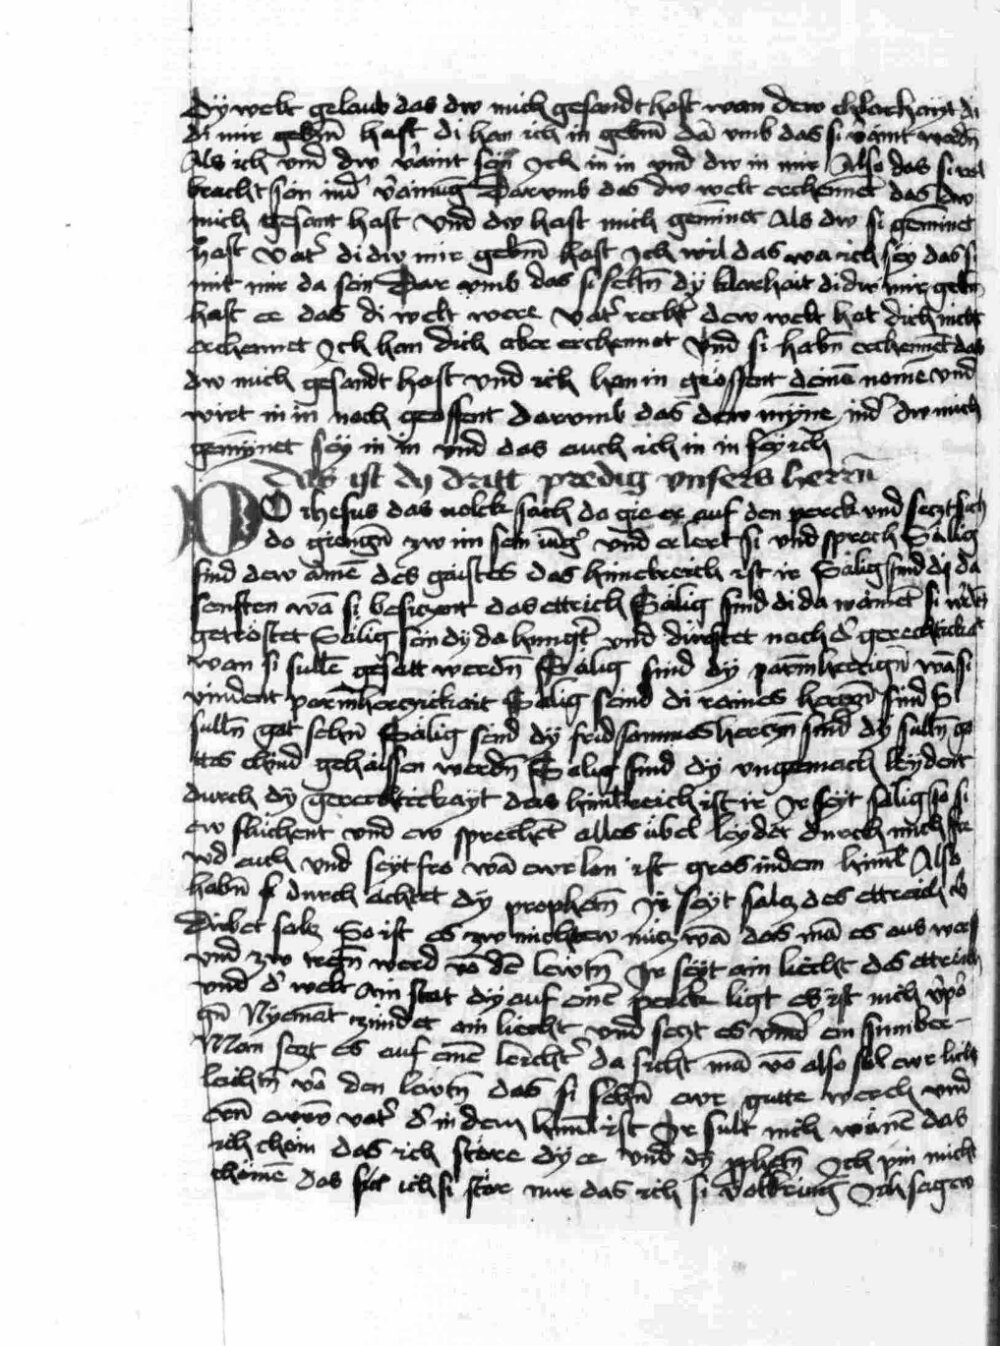 dÿ welt gelaub das dw mich gesandt hast wan dew chlarhayt di
di mir gebñ hast di han ich in gebñ dā vmb das si vaint werdñ
Als ich vnd dw vaint sein Ich in in vnd dw in mir Also das si vol
bracht sein in vainūg Darvmb das dw welt erchennet das dw
mich gesant hast vnd dw hast mich gemīnet Als dw si gemīnet
hast vat' di dw mir gebñ hast Ich wil das wa ich seÿ das si
mit mir da sein Dar vmb das si sehñ dÿ klarhait di dw mir gebñ
hast ee das di welt were vat' recht' dew welt hat dich nicht
erchennet Ich han dich aber erchennet vnd si habñ erchennet das
dw mich gesandt hast vnd ich han in geoffent deinē nome vnd
wirt in in noch geoffent darvmb das dew mÿne dw mich
gemÿnet seÿ in in vnd das auch ich in in seÿ ich
Das ist dy dritt predig vnsers herrñ
DO ihesus das uolck sach do gie er auf den perck vnd seczt sich
do giengñ zw im sein iūg' vnd er lert si vnd sprach Sälig
sind dew armē des gaistes das himelreich ist ir Sälig sind di da
senften wā si besiczent das ettreich Sälig sind di da wainēt si w'dñ
getröstet Sälig sein dÿ da hungt' vnd dürstet nach d' gerechtickait
wan si sullē gesatt werdñ Sälig sind dÿ parmherczigñ wā si
vindent parmherczickait Sälig seind di raines herczñ sind
sullñ got sehñ Sälig seind dÿ fridsammes herczñ sind dÿ sullñ go
ttes chind gehaissen werdñ Sälig sind dÿ vngemach leydent
durch dÿ gerechtickayt das himelreich ist ir Ir seyt sälig so si
ew fluchent vnd ew sprechēt alles übel leydet durch mich
vnd euch vnd seyt fro wā ewr lon ist gros in dem himel Also
habñ si durch ächtet dÿ prophetñ Ir seyt salcz des ettreich
salcz So ist es zw nichtew nücz wā das mā es aus werf
vnd zw tretñ werd vō dē lewtñ Ir seyt ain liecht des ettreich
vnd d' welt Ain stat dÿ auf einē perck ligt es ist nich v'por
gñ Nyemāt zündet ain liecht vnd seczt es vnd' ein sumber
Man seczt es auf einē leicht' da sicht mā vō also sol ewr liecht
leichtñ vō den lewtñ das si sehñ ewr gutte werch vnd
erñ ewrñ vat' d' in dem himel ist Ir sult nich wänē das
ich chöm das ich störe dÿ ee vnd dÿ pphetñ Ich pin nicht
chömē das ich si stör nur das ich si volbring Ich sag ew